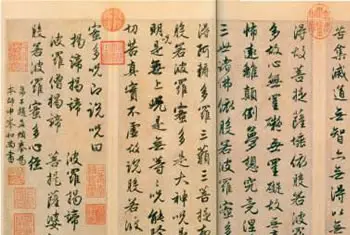 苦集滅道無智亦無
得故菩提薩埵依般若
多故心無罣礙無罣礙故
怖遠離顛倒夢想究竟涅
三世諸佛依般若波羅蜜多
得阿耨多羅三藐三菩提故
般若波羅蜜多是大神呪是
明呪是無上呪是無等等呪能除
切苦真實不虛故說般若波
蜜多呪即說呪曰
揭諦揭諦 波羅揭諦
波羅僧揭諦 菩提薩婆
般若波羅蜜多心經
弟子趙孟頫奉為
本師中峯和尚書